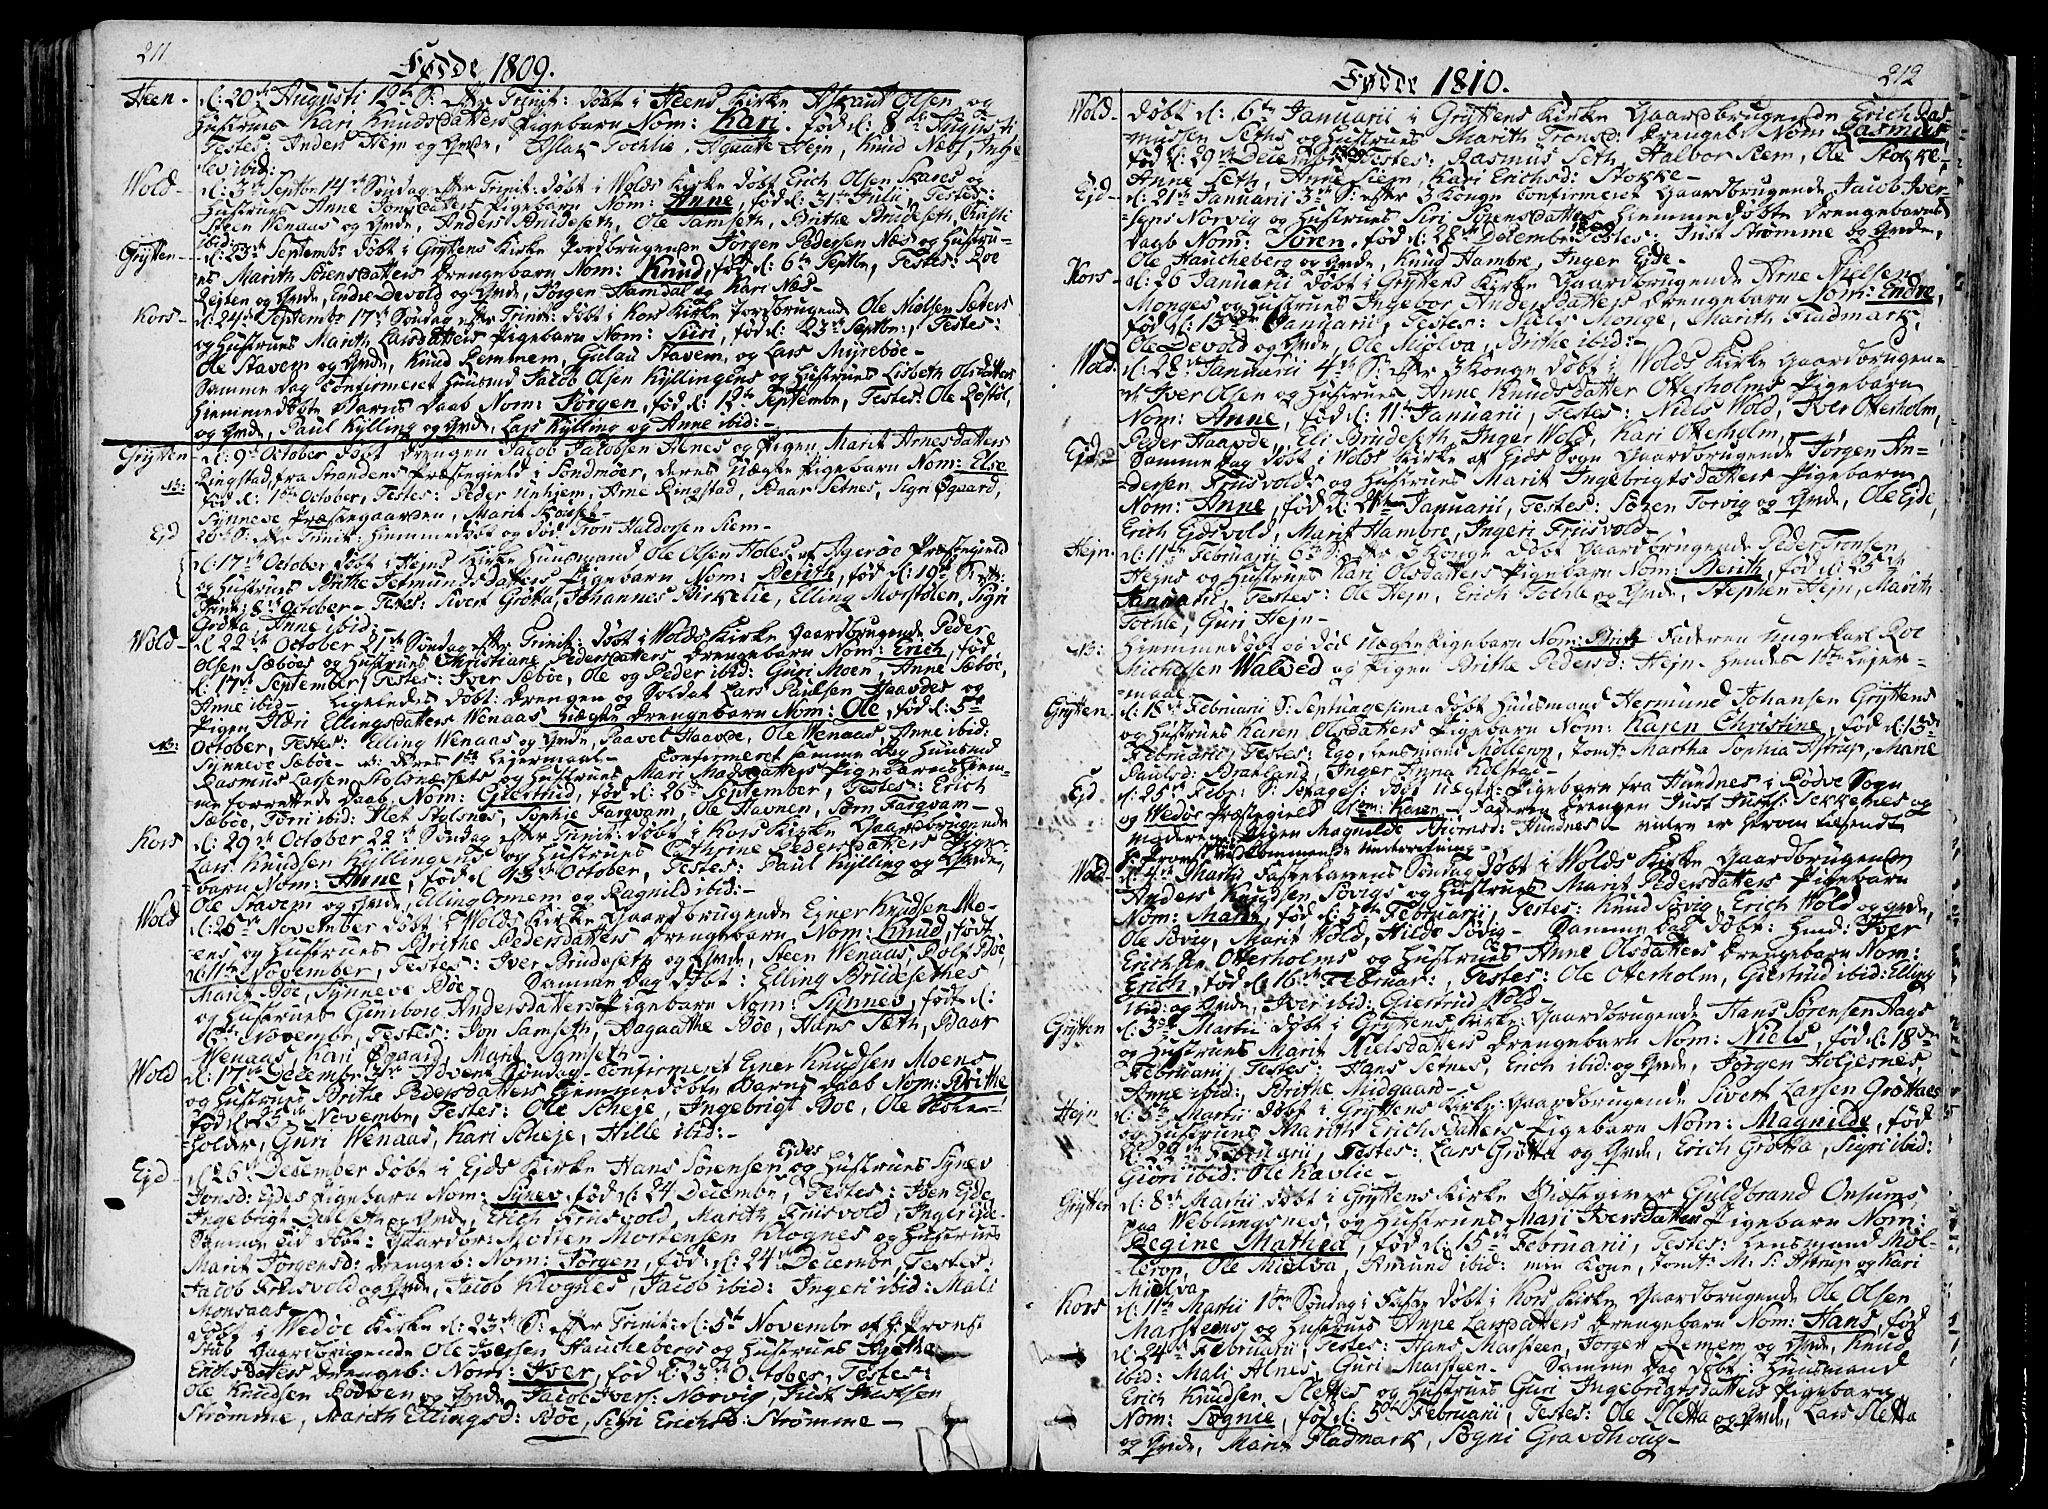 211
Fødde 1809.
Heen - d: 20de Augusti 12te S: efter Trinit: døbt i Heens Kirke Aslaut Olsen og
Hustrues Kari Knudsdatters Pigebarn Nom: Kari. fød d: 8de Augusti
Testes: Anders Hejn og Qvde, Aslak Tochle, Agaate Hejn, Knud Næss,
ibid:
Wold - d: 3de Septbr 14de Søndag efter Trinit: døbt i Wolds Kirke døbt Erich Olsen Skares og
Hustrues Anne Jonsdatters Pigebarn Nom: Anne, fød d: 31 Julii, Testes:
Steen Wenaas og Qvde, Anders Brudeseth, Ole Samseth, Brithe Brudeseth,
ibid:
Grytten - d: 23de Septembr døbt i Gryttens Kirke Jordbrugende Jørgen Pedersen Næs og Hustru-
es Marith Sørensdatters Drengebarn Nom: Knud, fød d: 6te Septbr, Testes: Roe
og Qvde, Endre Devold og Qvde, Jørgen Hamdal og Kari Næs -
Kors - d: 24de Septembr 17de Søndag efter Trinit: døbt i Kors Kirke Jordbrugende Ole Nielsen Sæters
og Hustrues Marith Larsdatters Pigebarn Nom: Siri, fød d: 23de Septbr, Testes:
Ole Stavem og Qvde, Knud Remmem, Gulau Stavem, og Lars Myrebøe -
Samme Dag Confirmeret Huusmd Jacob Olsen Kyllingens og Hustrues Lisbeth Olsdatters
Hiemmedøbte Barns Daab Nom: Jørgen, fød d: 19de Septembr, Testes: Ole
og Qvde, Paul Kylling og Qvde, Lars Kylling og Anne ibid: -
Grytten - d: 9de October døbt Drengen Jacob Jacobsen Alnes og Pigen Marit Arnesdatters
NB: Ringstad fra Strandens Præstegield i Søndmøer, deres Uægte Pigebarn Nom: Else
fød d: 1te October, Testes: Peder Unhjem, Arne Ringstad, Baar Setnes, Sigri Øgaard,
Synneve Præstegaarden, Marit
Ejd 20de S: efter Trinit: Hiemmedøbt og død Tron Haldorsen Siem -
d: 17de October døbt i Hejns Kirke Huusmand Ole Olsen Holes af Agerøe Præstegield
og Hustrues Brithe Jetmundsdatters Pigebarn Nom: Berithe, fød d: 19de S: efter
Trinit: 8de October - Testes: Sivert Grøtta, Johannes Birkelie, Elling Morstølen, Sigri
Grøtta, Anne ibid: -
Wold - d: 22de October 21de Søndag efter Trinit: døbt i Wolds Kirke Gaardbrugende Peder
Olsen Sæbøes og Hustrues Christiane Pedersdatters Drengebarn Nom: Erich, fød
d: 17de September, Testes: Iver Sæbøe, Ole og Peder ibid: Guri Moen, Anne Sæbøe,
Anne ibid - Ligeledes døbt: Drengen og Soldat Lars Paulsen Haavdes og
Pigen Ellingsdatters Wenaas Uægte Drengebarn Nom: Ole, fød d: 5te
NB: October, Testes: Elling Wenaas og Qvde, Paavel Haavde, Ole Wenaas, Anne ibid:
Synneve Sæbøe - NB: deres 1te Lejermaal - Confirmeret samme Dag Huusmd
Rasmus Larsen Stolsnesets og Hustrues Mari Madsdatters Pigebarns hiem-
me forrettede Daab, Nom: Giertrud, fød d: 26de September, Testes: Erich
Sæbøe, Tøri ibid: Stolsnes, Sophie Fargvam, Ole Havnen, Sørn Fargvam -
Kors d: 29de October 22de Søndag efter Trinit: døbt i Kors Kirke Gaardbrugende
Lars Knudsen Kyllingens og Hustrues Cathrine Pedersdatters Pige-
barn Nom: Anne, fød d: 13de October, Testes: Paul Kylling og Qvde,
Ole Stavem og Qvde, Elling Ormem og Ragnild ibid: -
Wold d: 26de November døbt i Wolds Kirke Gaardbrugende Ejner Knudsen Mo-
ens og Hustrues Brithe Pedersdatters Drengebarn Nom: Knud, født
d: 11te November, Testes: Iver Brudeseth og Qvde, Steen Wenaas, Rolf Bøe,
Marit Bøe, Synneve Bøe - Samme Dag døbt: Elling Brudesethes
og Hustrues Gunborg Andersdatters Pigebarn Nom: Synnev, født d:
November, Testes: Jon Samseth, Aagaathe Bøe, Hans Seth, Baar
Wenaas, Kari Øgaard, Marit Samseth -
Wold d: 17de December 3de Advent Søndag Confirmeret Ejner Knudsen Moens
og Hustrues Brithe Pedersdatters Hiemmedøbte Barns Daab Nom: Brithe
fød d: 25de Novembr, Testes: Ole Scheje, Ingebrigt Bøe, Ole
holdt, Guri Wenaas, Kari Scheje, Hille ibid: -
Ejd - d: 26de December døbt i Ejds Kirke Hans Sørensen Ejdes og Hustrues Synev
Jonsd: Ejdes Pigebarn Nom: Synev, fød d: 24 Decembr, Testes: Iver Ejde,
Ingebrigt og Qvde, Erich Friisvold, Marith Friisvold,
Samme Tid døbt: Gaardbr: Morten Mortensen Klognes og Hustrues
Marit Jørgensd: Drengeb: Nom: Jørgen, fød d: 24de Decembr, Testes:
Jacob Friisvold og Qvde, Jacob Klognes, Jacob ibid: Ingeri ibid: Mali
Monsaas
Døbt i Wedøe Kirke d: 23de S: efter Trinit: d: 5te Novembr af H: Provst
Stub Gaardbrugende Ole Iversen Hauchebergs og Hustrues Agathe
Erichsdatters Drengeb: Nom: Iver, fød d: 23de October, Testes:
Ole Knudsen Rødven og Qvde, Jacob Ivers: Norvig, Just Justsen
Strømme, Marith Ellingsd: Bøe, Siri Erichsd: Strømme -
212
Fødde 1810.
Wold - Døbt d: 6te Januarii i Gryttens Kirke Gaardbrugende Erich Ras-
mussen Seths og Hustrues Marith Tronsd: Drengeb: Nom: Rasmus,
fød d: 29de Decembr 1809 Testes: Rasmus Seth, Halbor Siem, Ole Stokke -
Anne Seth, Anne Siem, Kari Erichsd: Stokke -
Ejd - d: 21de Januarii 3de S: efter 3 Konge Confirmeret Gaardbrugende Jacob Iver-
sens Norvig og Hustrues Siri Sørensdatters Hiemmedøbte Drengebarns
Daab Nom: Søren, fød d: 28de Decembr 1809 Testes: Just Strømme og Qvde,
Ole Haucheberg og Qvde, Knud Hambre, Inger Ejde -
Kors - d: 26 Januarii døbt i Gryttens Kirke Gaardbrugende Arne Nielsen
Monges og Hustrues Ingebor Andersdatters Drengebarn Nom: Endre,
fød d: 13de Januarii, Testes: Niels Monge, Marith Fladmark,
Ole Devold og Qvde, Ole Mielva, Brithe ibid: -
Wold. d: 28de Januarii 4de S: efter 3 Konge døbt i Wolds Kirke Gaardbrugen-
de Iver Olsen og Hustrues Anne Knudsdatter Otterholms Pigebarn
Nom: Anne, fød d: 11te Januarii, Testes: Niels Wold, Iver Otterholm,
Peder Haavde, Eli Brudeseth, Inger Wold, Kari Otterholm,
Ejd - Samme Dag døbt i Wolds Kirke af Ejds Sogn Gaardbrugende Jørgen An-
dersen Friisvolds og Hustrues Marit Ingebrigtsdatters Pigebarn
Nom: Anne, fød d: 21de Januarii, Testes: Søren Torvig og Qvde, Ole Ejde,
Erich Ejdsvold, Marit Hambre, Ingeri Friisvold -
Hejn. d: 11te Februarii 6te S: efter 3 Konge døbt Gaardbrugende Peder Tronsen
Hejns og Hustrues Kari Olsdatters Pigebarn Nom: Berith, fød d: 25de
Januarii, Testes: Ole Hejn, Erich Tochle og Qvde, Stephen Hejn, Marith
Tochle, Guri Hejn -
NB: Hiemmedøbt og død Uægte Pigebarn Nom: Brite Faderen Ungekarl Roe
Michelsen Walved og Pigen Brithe Pedersd: Hejn - Hendes 1te Lejer-
maal -
Grytten d: 18de Februarii S: Septuagesima døbt Huusmand Hermund Johansen Gryttens
og Hustrues Karen Olsdatters Pigebarn Nom: Karen Christine, fød d: 13de
Februarii, Testes: Ego, Lensmand Møllerop, Jomf: Martha Sophia Astrup, Marie
Paulsd: Inger Anna
Ejd d: 25de Febr: S: Sexages: døbt Uægte Pigebarn fra Hundnes i Rødve Sogn
og Wedøe Præstegield Nom: Karen - Faderen Drengen Just Justs: Sekkenes og
Moderen Pigen Magnilde Hundnes - videre er herom tilsendt
H: Provst Vedkommende Underretning -
Wold - d: 4de Martii Fastelavens Søndag døbt i Wolds Kirke Gaardbrugende
Anders Knudsen Søvigs og Hustrues Marit Pedersdatters Pigebarn
Nom: fød d: 5te Februarii, Testes: Knud Søvig, Erich Wold og Qvde,
Ole Søvig, Marit Wold, Hilde Søvig - Samme Dag døbt: Huusmd: Iver
Erichsen Otterholms og Hustrues Anne Olsdatters Drengebarn Nom:
Erich, fød d: 16de Februar: Testes: Ole Otterholm, Giertrud ibid: Elling
ibid: og Qvde, Iver ibid: Giertrud Wold -
Grytten d: 3de Martii døbt i Gryttens Kirke: Gaardbrugende Hans Sørensen Aags
og Hustrues Marit Nielsdatters Drengebarn Nom: Niels, fød d: 18de
Februarii, Testes: Hans Setnes, Erich ibid: og Qvde, Jørgen Holjesnes,
Anne ibid: Brithe Midgaard -
Hejn d: 5te Martii døbt i Gryttens Kirke: Gaardbrugende Sivert Larsen Grøttaes
og Hustrues Marith Erichsdatters Pigebarn Nom: Magnilde, fød
d: 20de Februarii, Testes: Lars Grøtta og Qvde, Erich Grøtta, Sigri ibid:
Giøri ibid: Ole Kavlie -
Grytten d: 8de Martii døbt i Gryttens Kirke Giæstgiver Guldbrand Onsums
paa Weblungsnes, og Hustrues Mari Iversdatters Pigebarn Nom:
Regine Mathea, fød d: 15de Februarii, Testes: Lensmand Møl-
lerop, Ole Mielva, Amund ibid: min Kone, Jomf: M. S: Astrup og Kari
Mielva
Kors d: 11te Martii 1te Søndag i Faste døbt i Kors Kirke Gaardbrugende Ole Olsen
Marsteens og Hustrues Anne Larsdatters Drengebarn Nom: Hans, fød
d: 24de Februarii, Testes: Hans Marsteen, Jørgen Remem og Qvde, Knud
ibid: Mali Alnes, Guri Marsteen - Samme Dag døbt Huusmand
Erich Knudsen Slettes og Hustrues Guri Ingebrigtsdatters Pigebarn
Nom: Sognie, fød d: 5te Februarii, Testes: Ole Sletta og Qvde, Lars Sletta
og Qvde, Marit Fladmark, Sogni Gravdhoug -